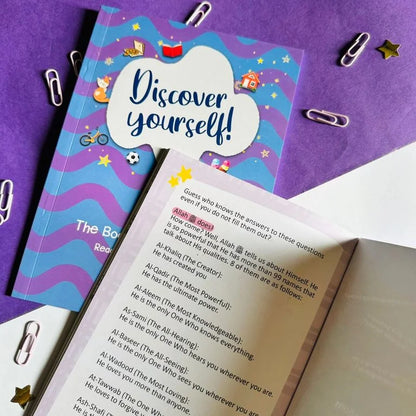 Discover
yourself!
The Bo
Rea
Guess who knows the answers to these questions
even if you do not fill them out?
Allah ﷻ does!
How come? Well, Allah ﷻ tells us about Himself. He
is so powerful that He has more than 99 names that
talk about His qualities. 8 of them are as follows:
Al-Khaliq (The Creator):
He has created you
Al-Qadis (The Most Powerful):
He has the ultimate power.
Al-Aleem (The Most Knowledgeable):
He is the only One Who knows everything.
As-Sami (The All-Hearing):
He is the only One Who hears you wherever you are.
Al-Baseer (The All-Seeing):
He is the only One Who sees you wherever you are.
Al-Wadood (The Most Loving):
He loves you more than anyone.
At-Tawwab (The One Who
He loves to forgive
Ash-Shafi (